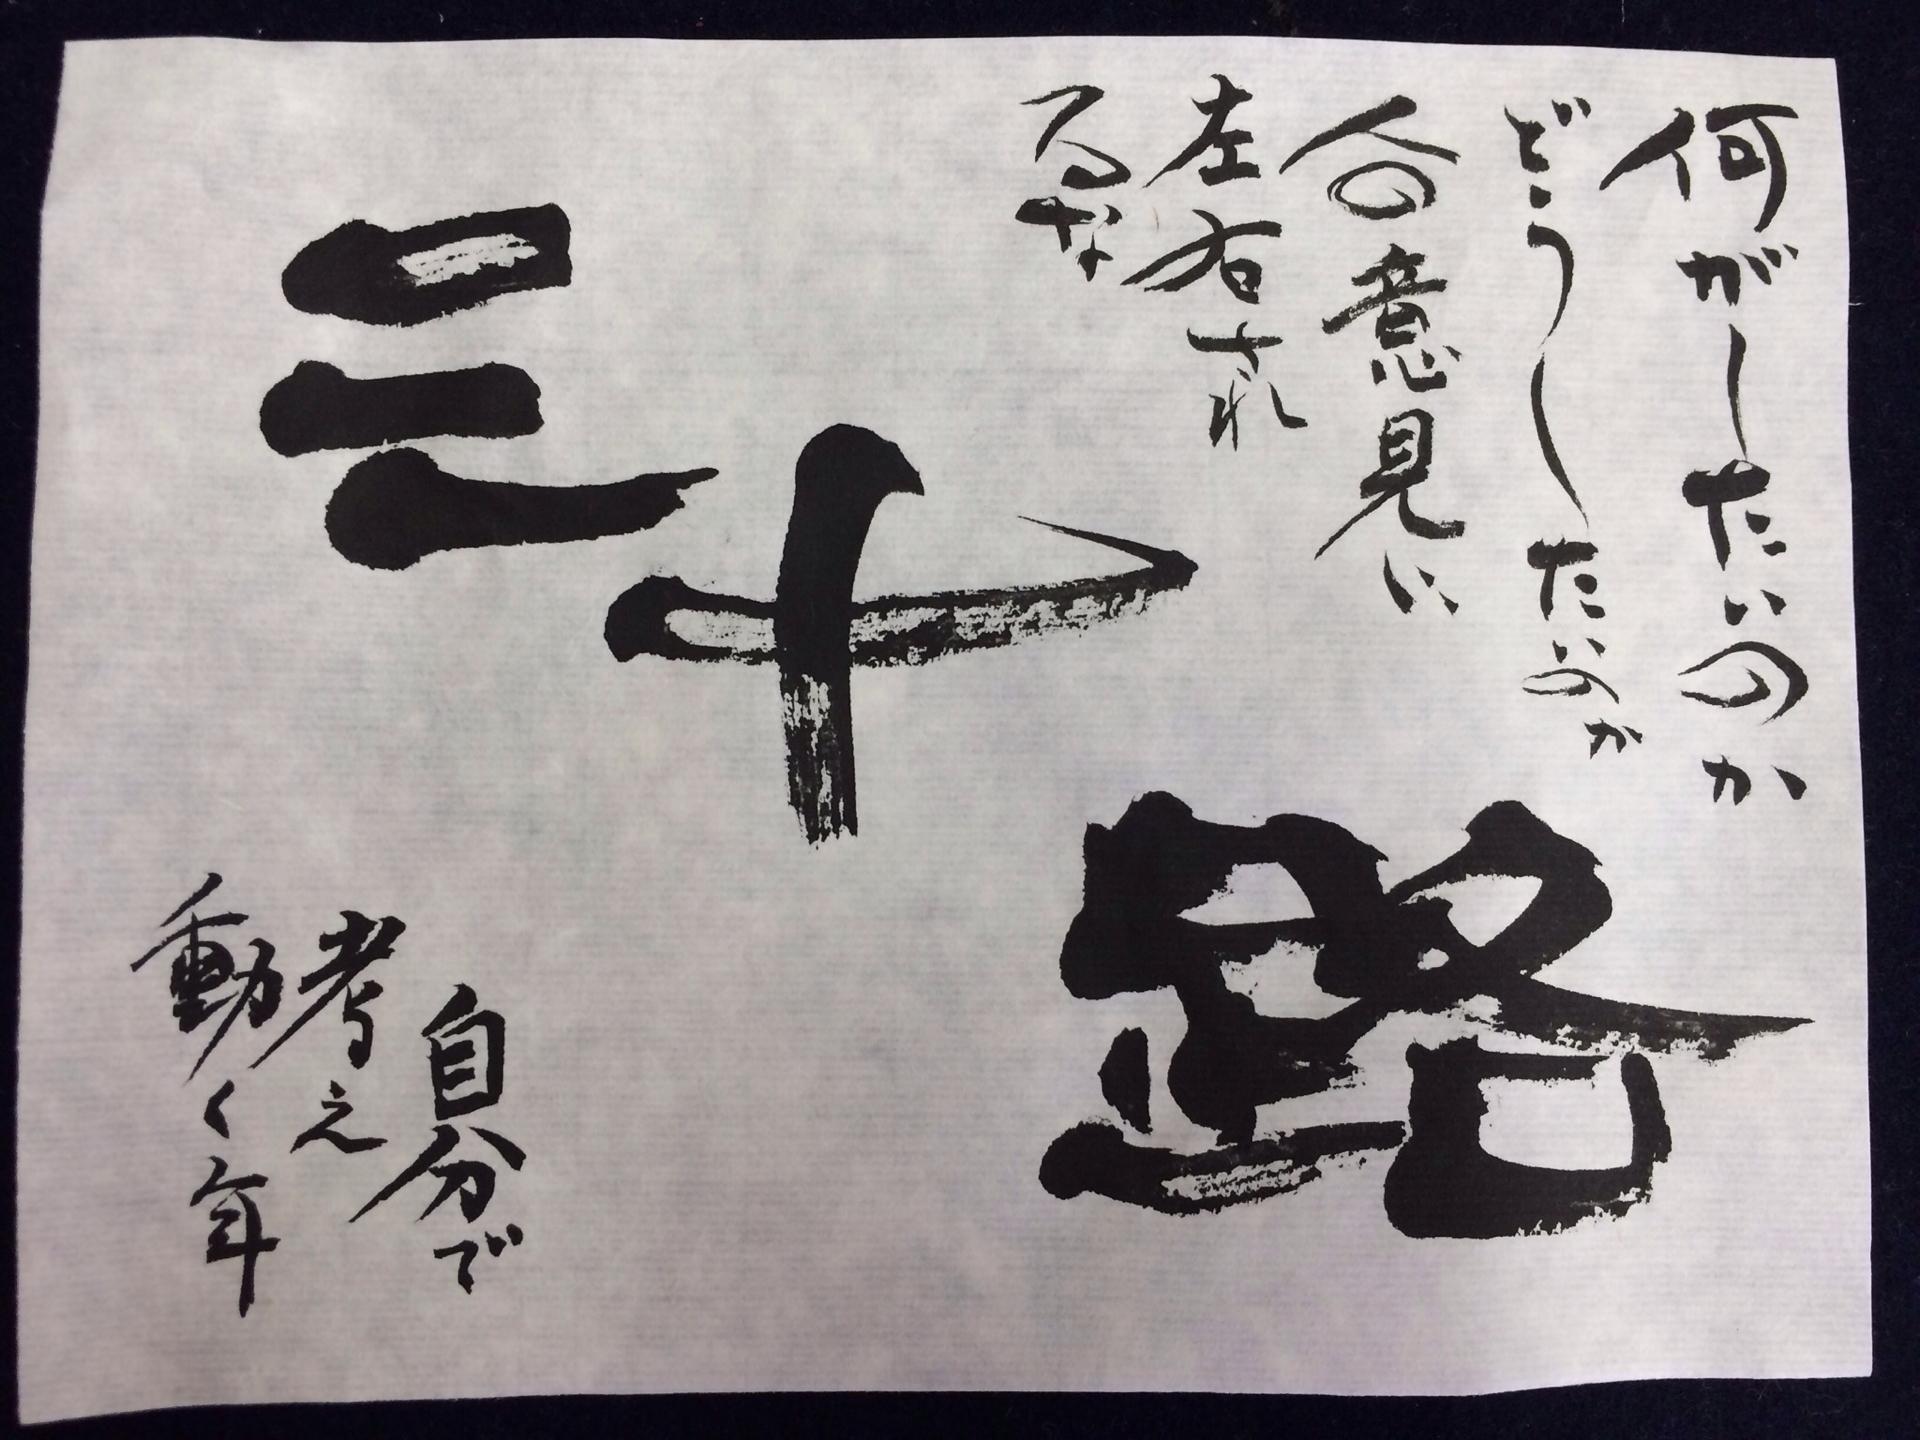 何がしたいのか
どうしたいのか
人の意見に
左右され
るな
路
十
三
自分で
考え
動く年